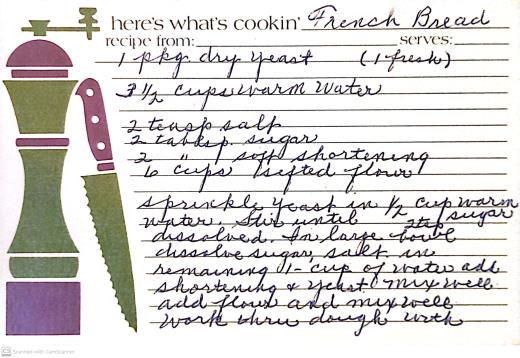 here's what's cookin' French Bread
recipe from: serves:
1 pkg dry yeast (1 fresh)
1/2 cups warm water
2 teasp salt
2 tablsp. sugar
2 " soft shortening
6 cups sifted flour
sprinkle yeast in 1/2 cup warm
water. Stir until sugar
dissolved. In large bowl
dissolve sugar, salt in
remaining 1- cup of water add
shortening & yeast mix well
add flour and mix well
Work thru dough with
CS Scanned with CamScanner